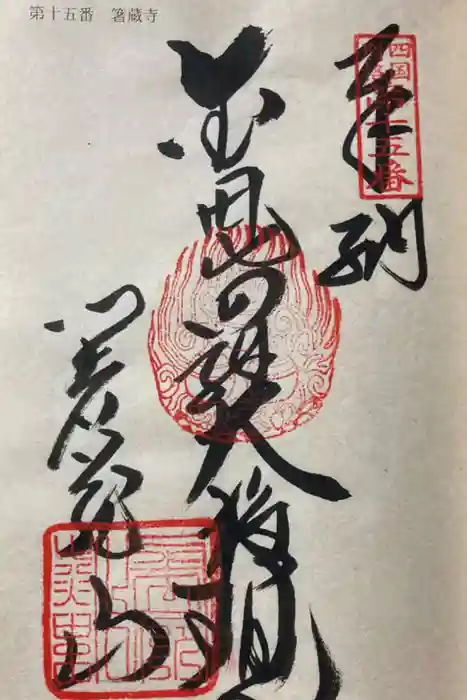 第十五番　箸蔵寺
奉納
四国別格
十五番
金毘羅大権現
箸蔵山